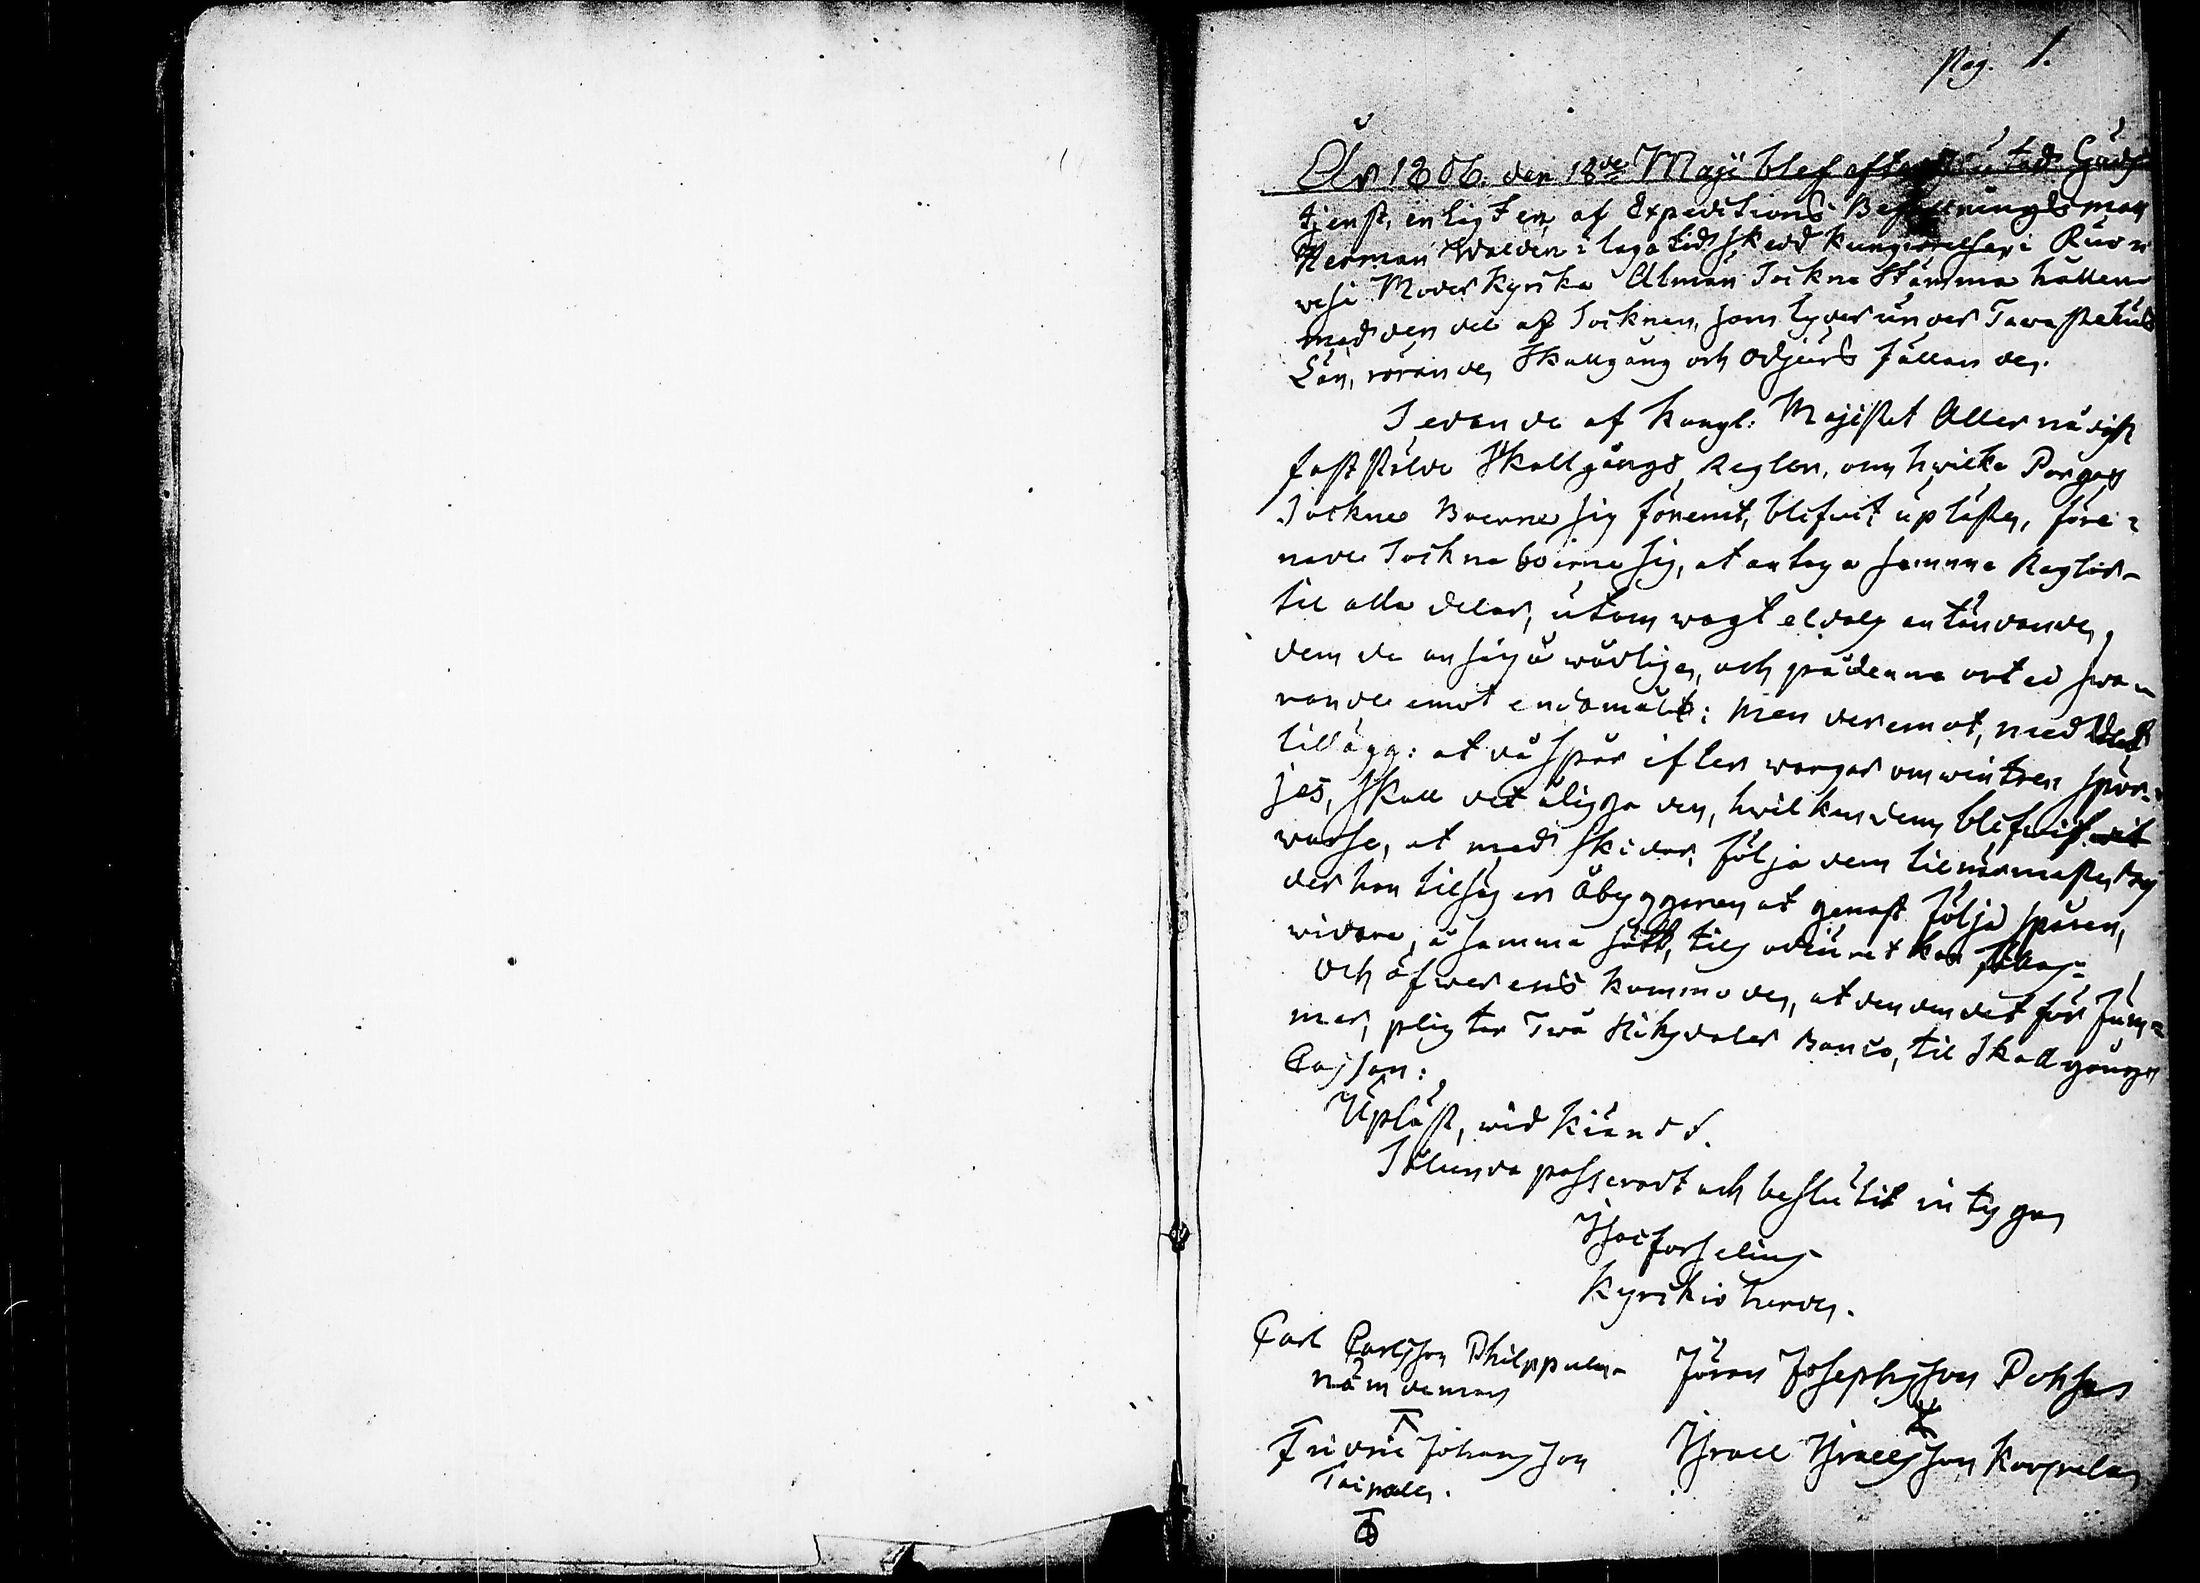 Pag. 1.
År 1806. den 18de Maji blef efter slutad Guds
tjenst, enligt en af Expeditions Befallningsman
Herman Walden i laga tid skedd kungörelse, i Ruo=
wesi Moderkyrka Alman Sockne Stämma hållen
med den del af Socknen, som lyder under Tawastehus
Län, rörande Skallgång och Odjurs fällande.
Sedan de af Kongl. Majestet Allernådigst
fastställde Skallgångs Reglor, om hwilka Pargas
Sockne Boerne sig förent, blifwit uplästa, före=
nade Sockneboerna sig, at antaga samma Reglor
til alla delar, utom wagt eldars antändande,
dem de ansågo wådliga, och på denna ort ei swa=
rande emot endamålet: Men deremot, med det
tillägg: at då spår efter wargar om wintren spör=
jes, skall det åligga den, hwilken dem blifwit
warse, at med skidor följa dem til närmaste by
der han tilsäger Åbyggaren at genast följa spåren,
widare, å samma sätt, tils odiuret kan fällas;
och öfwerens kommo de, at den som det försum=
mar, pligtar Twå Riksdaler Banco, til Skallgångs
Cassan:
Upläst, widkiändt.
Sålunda passeradt och beslutit intygas
Kyrkioherde.
Carl Carlsson Philppula
nämdeman
Jöran Josephsson Pohja
Fridric Johansson
Taipale.
Israel Israelsson Korpela